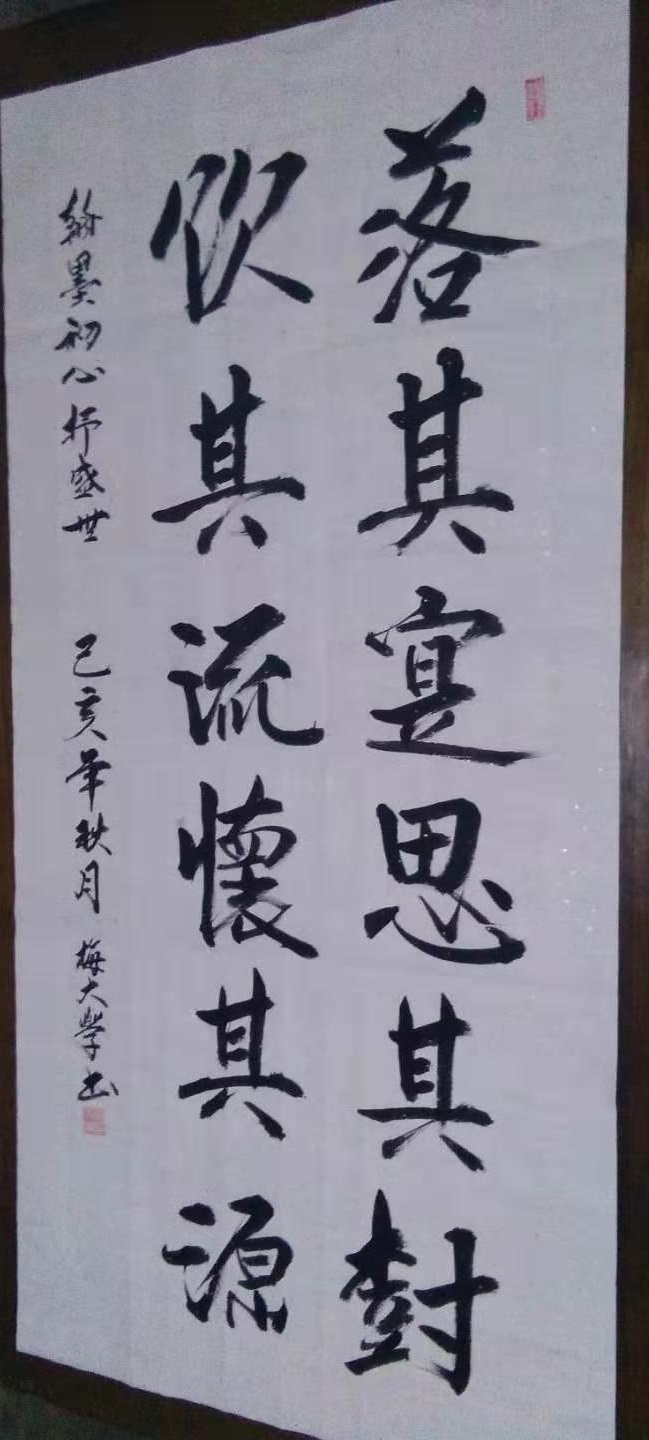 落其寔思其樹
飲其流懷其源
翰墨初心抒盛世 己亥年秋月 梅大學書